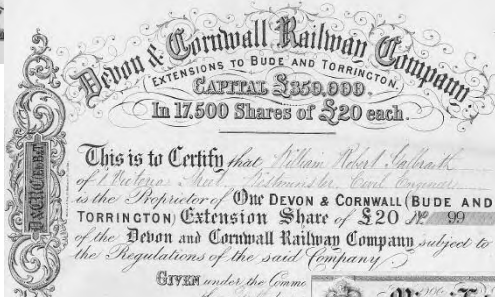 Devon & Cornwall Railway Company.
EXTENSIONS TO BUDE AND TORRINGTON.
CAPITAL £350,000.
In 17,500 Shares of £20 each.
This is to Certify that William Robert Galbraith
of 1 Victoria Street Westminster, Civil Engineer
is the Proprietor of One DEVON & CORNWALL (BUDE AND
TORRINGTON) Extension Share of £20 No. 99
of the Devon and Cornwall Railway Company subject to
the Regulations of the said Company.
GIVEN under the Comm